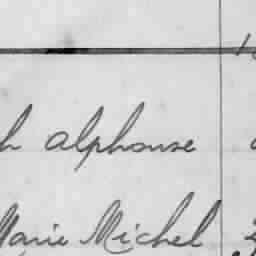 h alphonse
Marie Michel